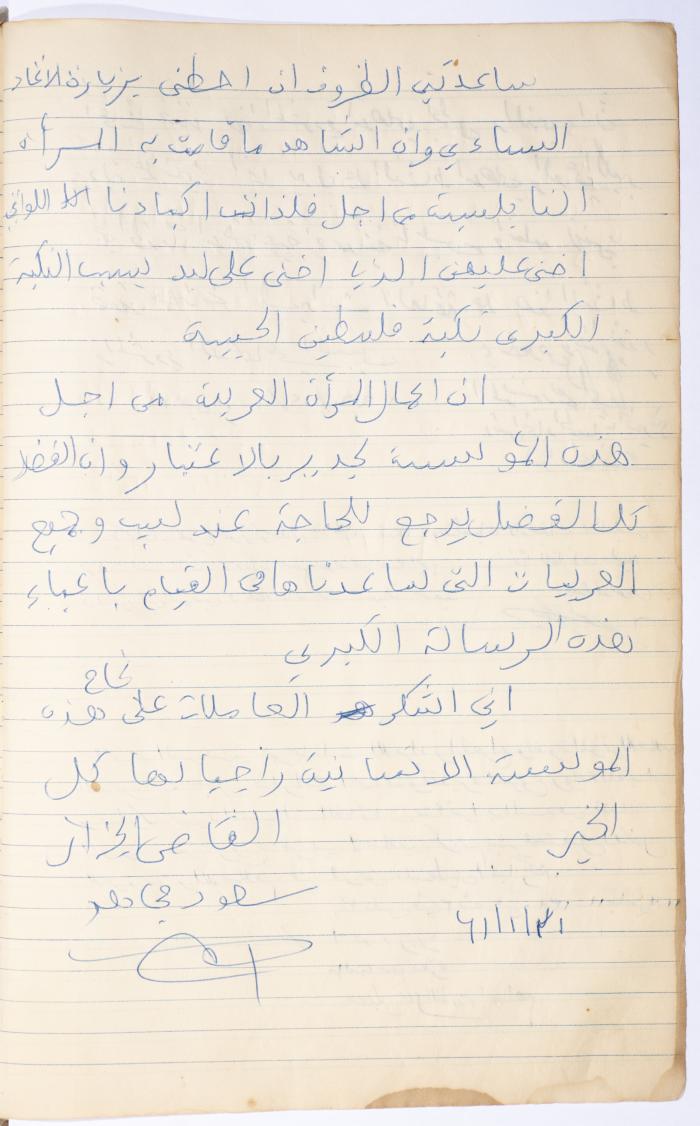 ساعدتني الظروف ان احظى بزيارة الاتحاد
النسائي وان اشاهد ما قامت به المرأة
النابلسية من اجل فلذات اكبادنا اللواتي
اخنى عليهن الذي اخنى على لبد بسبب النكبة
الكبرى نكبة فلسطين الحبيبة
ان اعمال المرأة العربية من اجل
هذه المؤسسة لجدير بالاعتبار وان الفضل
كل الفضل يرجع للحاجة عندليب وجميع
العربيات التي ساعدناها في القيام باعباء
هذه الرسالة الكبرى
اني اشكر العاملات على نجاح هذه
المؤسسة الانسانية راجيا لها كل
الخير
القاضي
سعود مجاهد